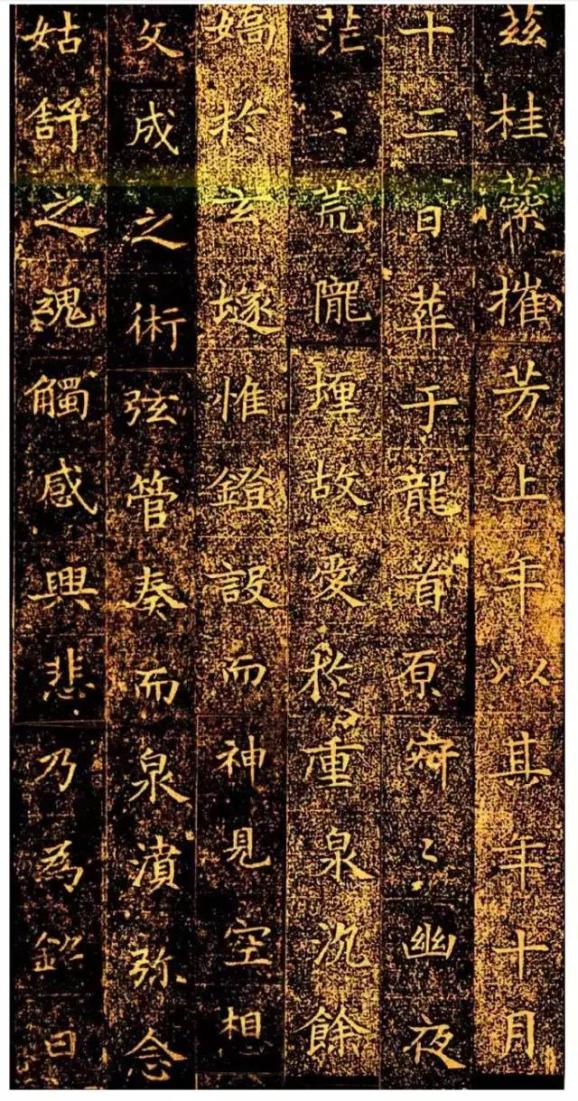 茲桂蘂摧芳上年以其年十月
十二日葬于龍首原㝠〻幽夜
茫〻荒隴埋故愛於重泉沉餘
嬌於玄墜惟鐙設而神見空相
文成之術弦管奏而泉濆弥念
姑舒之魂觸感興悲乃為銘曰